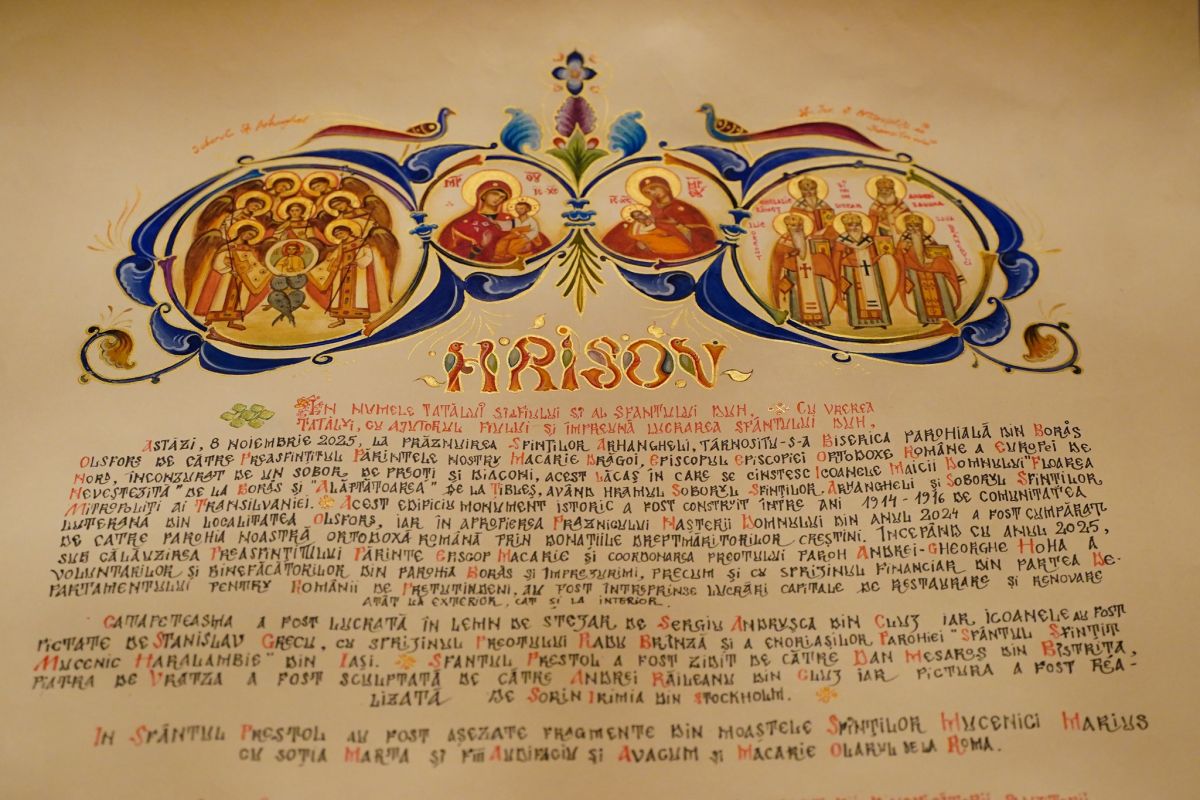 Soborul Sf. Arhangheli
ΜΡ ΘΥ
IC XC
ΜΡ ΘΥ
IC XC
HRISOV
ÎN NUMELE TATĂLUI ȘI AL FIULUI ȘI AL SFÂNTULUI DUH, CU VREREA
TATĂLUI, CU AJUTORUL FIULUI ȘI ÎMPREUNĂ LUCRAREA SFÂNTULUI DUH,
ASTĂZI, 8 NOIEMBRIE 2025, LA PRĂZNUIREA SFINȚILOR ARHANGHELI, TÂRNOSITU-S-A BISERICA PAROHIALĂ DIN BORÅS
OLSFORS DE CĂTRE PREASFINȚITUL PĂRINTELE NOSTRU MACARIE DRĂGOI, EPISCOPUL EPISCOPIEI ORTODOXE ROMÂNE A EUROPEI DE
NORD, ÎNCONJURAT DE UN SOBOR DE PREOȚI ȘI DIACONI, ACEST LĂCAȘ ÎN CARE SE CINSTESC ICOANELE MAICII DOMNULUI "FLOAREA
NEVESTEJITĂ" DE LA BORÅS ȘI "ALĂPTĂTOAREA" DE LA ȚIBLEȘ, AVÂND HRAMUL SOBORUL SFINȚILOR ARHANGHELI ȘI SOBORUL SFINȚILOR
MITROPOLIȚI AI TRANSILVANIEI. ACEST EDIFICIU MONUMENT ISTORIC A FOST CONSTRUIT ÎNTRE ANI 1914 - 1916 DE COMUNITATEA
LUTERANĂ DIN LOCALITATEA OLSFORS, IAR ÎN APROPIEREA PRAZNICULUI NAȘTERII DOMNULUI DIN ANUL 2024 A FOST CUMPĂRAT
DE CĂTRE PAROHIA NOASTRĂ ORTODOXĂ ROMÂNĂ PRIN DONAȚIILE DREPTMĂRITORILOR CREȘTINI. ÎNCEPÂND CU ANUL 2025,
SUB CĂLĂUZIREA PREASFINȚITULUI PĂRINTE EPISCOP MACARIE ȘI COORDONAREA PREOTULUI PAROH ANDREI-GHEORGHE HOHA A
VOLUNTARILOR ȘI BINEFĂCĂTORILOR DIN PAROHIA BORÅS ȘI ÎMPREJURIMI, PRECUM ȘI CU SPRIJINUL FINANCIAR DIN PARTEA DE-
PARTAMENTULUI PENTRU ROMÂNII DE PRETUTINDENI, AU FOST ÎNTREPRINSE LUCRĂRI CAPITALE DE RESTAURARE ȘI RENOVARE
ATÂT LA EXTERIOR, CÂT ȘI LA INTERIOR.
CATAPETEASMA A FOST LUCRATĂ ÎN LEMN DE STEJAR DE SERGIU ANDRUȘCA DIN CLUJ IAR ICOANELE AU FOST
PICTATE DE STANISLAV GRECU, CU SPRIJINUL PREOTULUI RADU BRÎNZĂ ȘI A ENORIAȘILOR PAROHIEI "SFÂNTUL SFINȚIT
MUCENIC HARALAMBIE" DIN IAȘI. SFÂNTUL PRESTOL A FOST ZIDIT DE CĂTRE DAN MESAROȘ DIN BISTRIȚA,
PIATRA DE VRATZA A FOST SCULPTATĂ DE CĂTRE ANDREI RĂILEANU DIN CLUJ IAR PICTURA A FOST REA-
LIZATĂ DE SORIN IRIMIA DIN STOCKHOLM.
IN SFÂNTUL PRESTOL AU FOST AȘEZATE FRAGMENTE DIN MOAȘTELE SFINȚILOR MUCENICI MARIUS
CU SOȚIA MARTA ȘI FIII AUDIFACIU ȘI AVACUM ȘI MACARIE OLARUL DE LA ROMA.